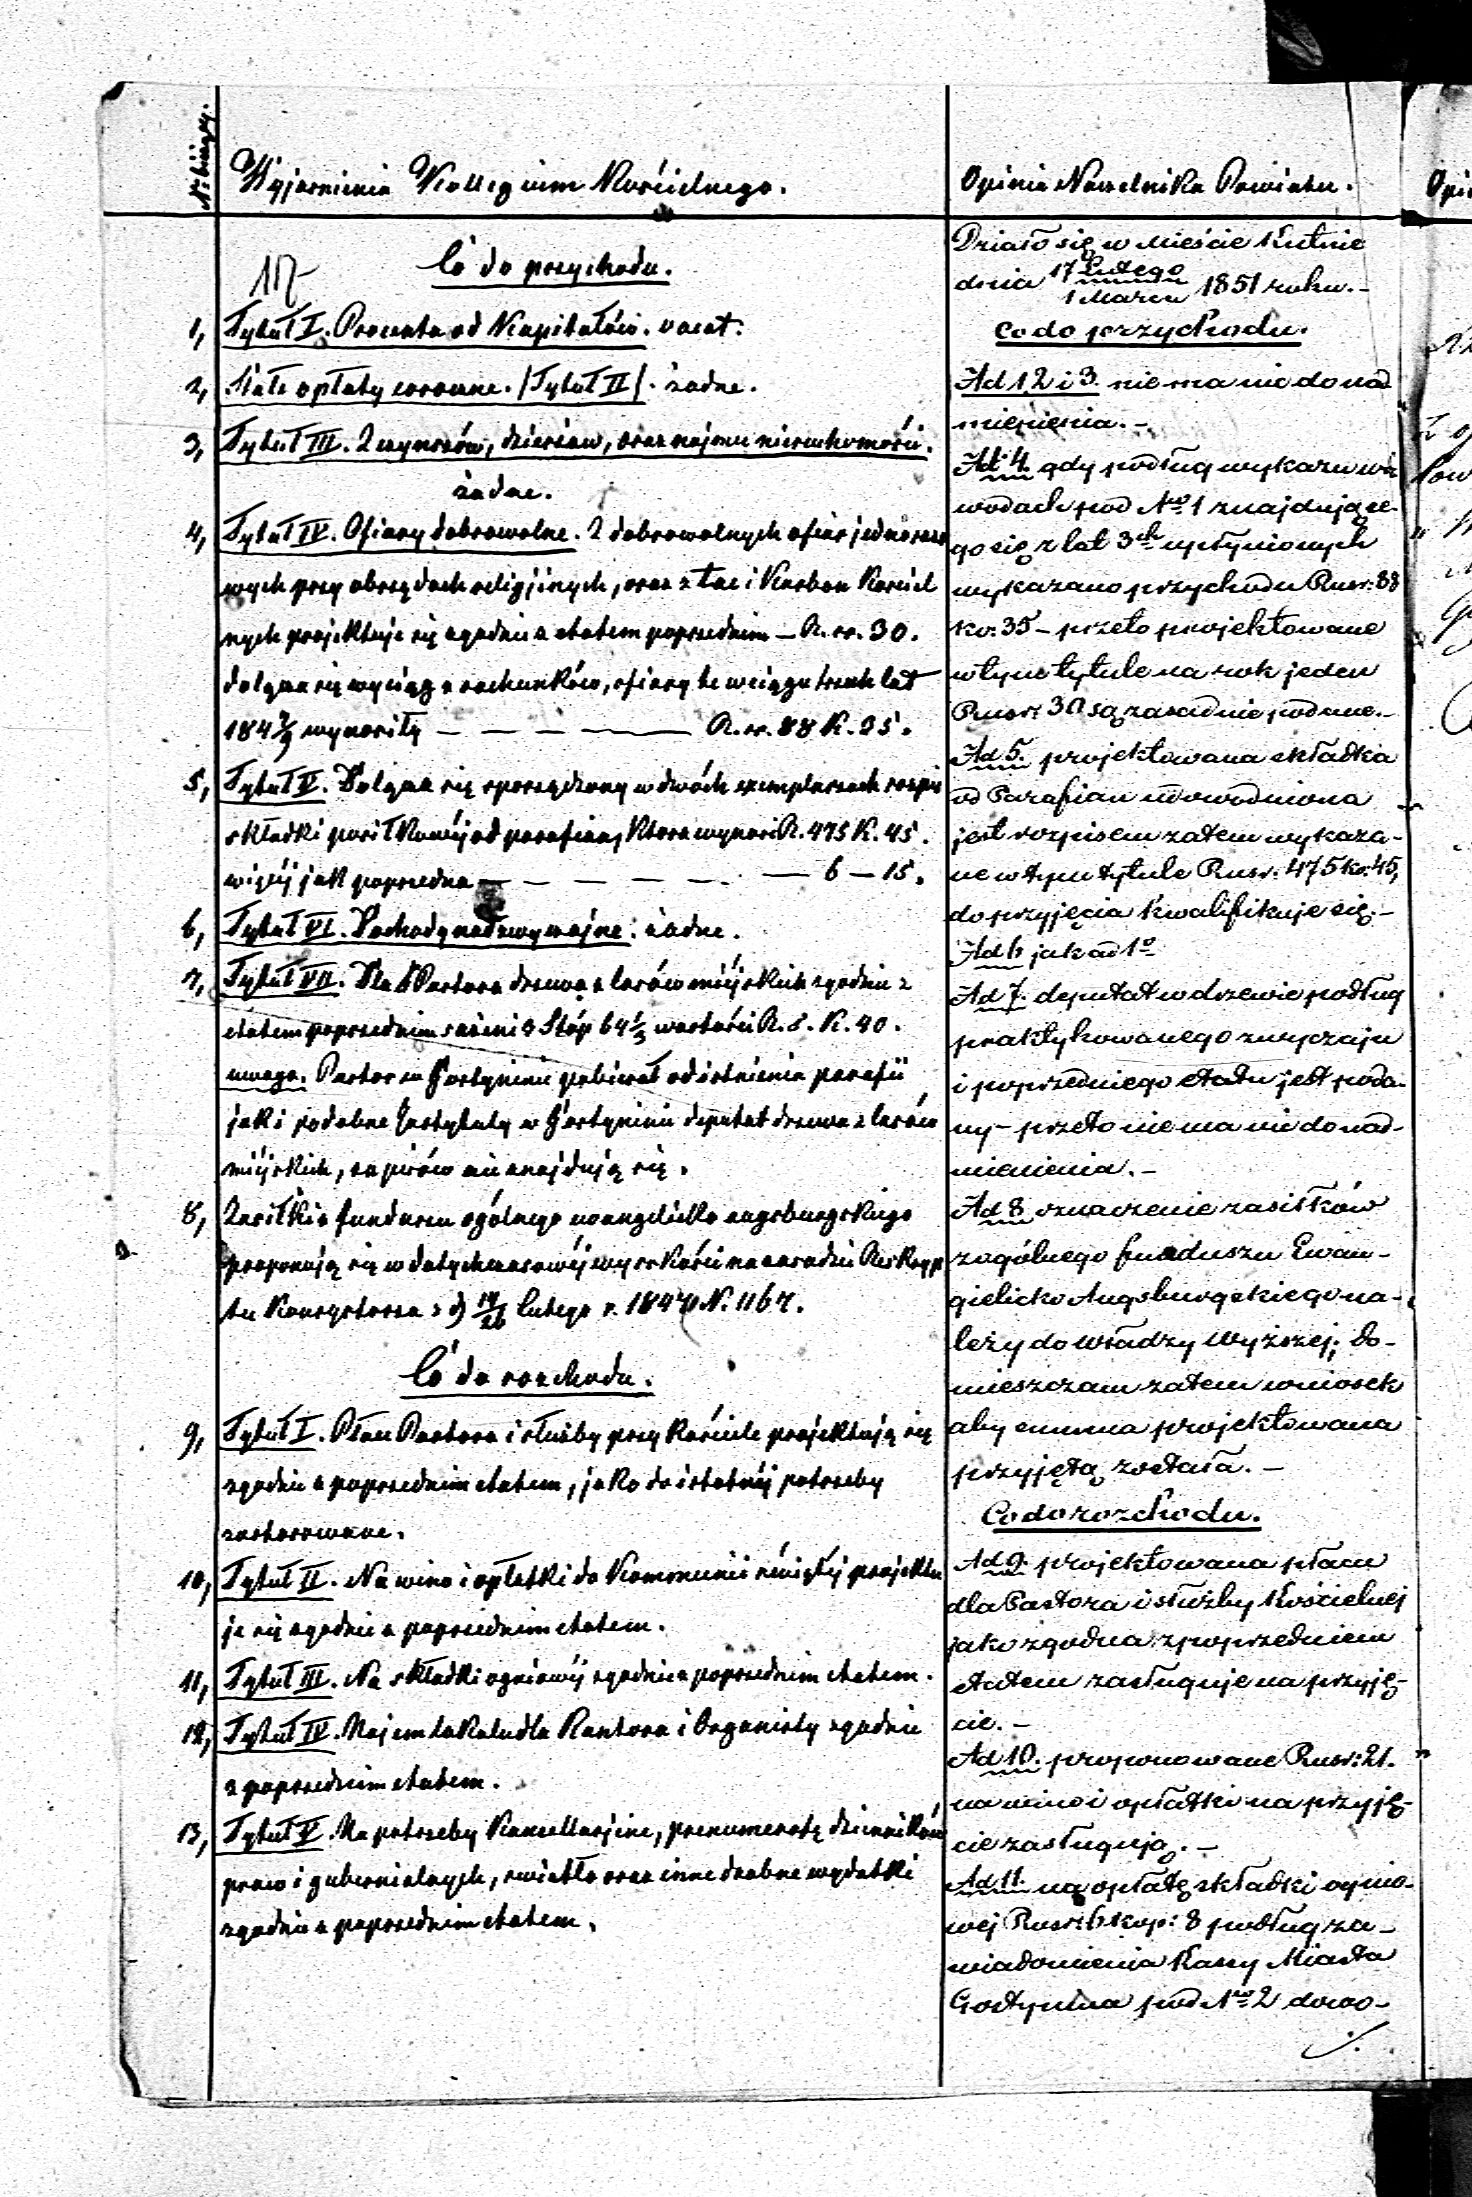 N: bieżący.
Wyjaśnienia Kollegium Kościelnego.
17
Có do przychodu.
1, Tytuł I. Procenta od Kapitałów. vacat.
2, Stałe opłaty coroczne. /Tytuł II/. żadne.
3, Tytuł III. Z czynszów, dzierżaw, oraz najmu nieruchomości.
żadne.
4, Tytuł IV. Ofiary dobrowolne. Z dobrowolnych ofiar jednorazo
wych przy obrzędach religijnych, oraz z tac i Karbon Kościel
nych projektuje się zgodnie z etatem poprzednim — R. sr. 30.
dołącza się wyciąg z rachunków, ofiary te w ciągu trzech lat
184 7/9 wynosiły — — — — — — R. sr. 88 K. 35.
5, Tytuł V. Dołącza się sporządzony w dwóch exemplarzach rozpis
składki posiłkowéj od parafian, która wynosi R. 475 K. 45.
więcéj jak poprzednia — — — — — — 6 — 15.
6, Tytuł VI. Dochody nadzwyczajne: żadne.
7, Tytuł VII. Dla Pastora drzewa z lasów miéjskich zgodnie z
etatem poprzednim sążni 3 Stóp 64 1/3 wartości R. 8. K. 40.
uwaga. Pastor w Gostyninie pobierał od istnienia parafii
jak i podobne Instytuty w Gostyninie deputat drzewa z lasów
miéjskich, zapisów nie znajdują się.
8, Zasiłki z funduszu ogólnego ewangelicko augsburgskiego
proponują się w dotychczasowéj wysokości na zasadzie Reskryp
tu Konsystorza z d 14/26 lutego r. 1847 N. 1167.
Có do rozchodu.
9, Tytuł I. Płace Pastora i służby przy Kościele projektują się
zgodnie z poprzednim etatem, jako do istotnéj potrzeby
zastosowane.
10, Tytuł II. Na wino i opłatki do Kommunii świętéj projektu
je się zgodnie z poprzednim etatem.
11, Tytuł III. Na składki ogniowéj zgodnie z poprzednim etatem.
12, Tytuł IV. Najem lokalu dla Kantora i Organisty zgodnie
z poprzednim etatem.
13, Tytuł V. Na potrzeby Kancellaryjne, prenumeratę dzienników
praw i gubernialnych, światło oraz inne drobne wydatki
zgodnie z poprzednim etatem.
Opinia Naczelnika Powiatu.
Działo się w Mieście Kutnie
dnia 17 Lutego / 1 Marca 1851 roku.—
Co do przychodu.
Ad 1 2 i 3. nie ma nic do nad
mienienia.—
Ad 4. gdy podług wykazu w do
wodach pod No 1 znajdujące-
go się z lat 3ch upłynionych
wykazano przychodu Rusr: 88
ko: 35 – przeto projektowane
w tym tytule na rok jeden
Rusr: 30 są zasadnie podane.—
Ad 5. projektowana składka
od Parafian udowodniona
jest rozpisem zatem wykaza-
ne w tym tytule Rusr: 475 ko: 45,
do przyjęcia kwalifikuje się.—
Ad 6 jak ad 1o
Ad 7. deputat w drzewie podług
praktykowanego zwyczaju
i poprzedniego etatu jest poda-
ny – przeto nie ma nic do nad-
mienienia.—
Ad 8 oznaczenie zasiłków
z ogólnego funduszu Ewan-
gielicko Augsburgskiego na-
leży do władzy wyższej; do-
mieszczam zatem wniosek
aby summa projektowana
przyjętą została.—
Co do rozchodu.
Ad 9. projektowana płaca
dla Pastora i służby Kościelnej
jako zgodna z poprzedniem
etatem zasługuje na przyję-
cie.—
Ad 10. proponowane Rusr: 21.
na wino i opłatki na przyję-
cie zasługują.—
Ad 11. na opłatę składki ognio-
wej Rusr: 6 kop: 8 podług za-
wiadomienia Kassy Miasta
Gostynina pod No 2 dowo-
./.
Opi